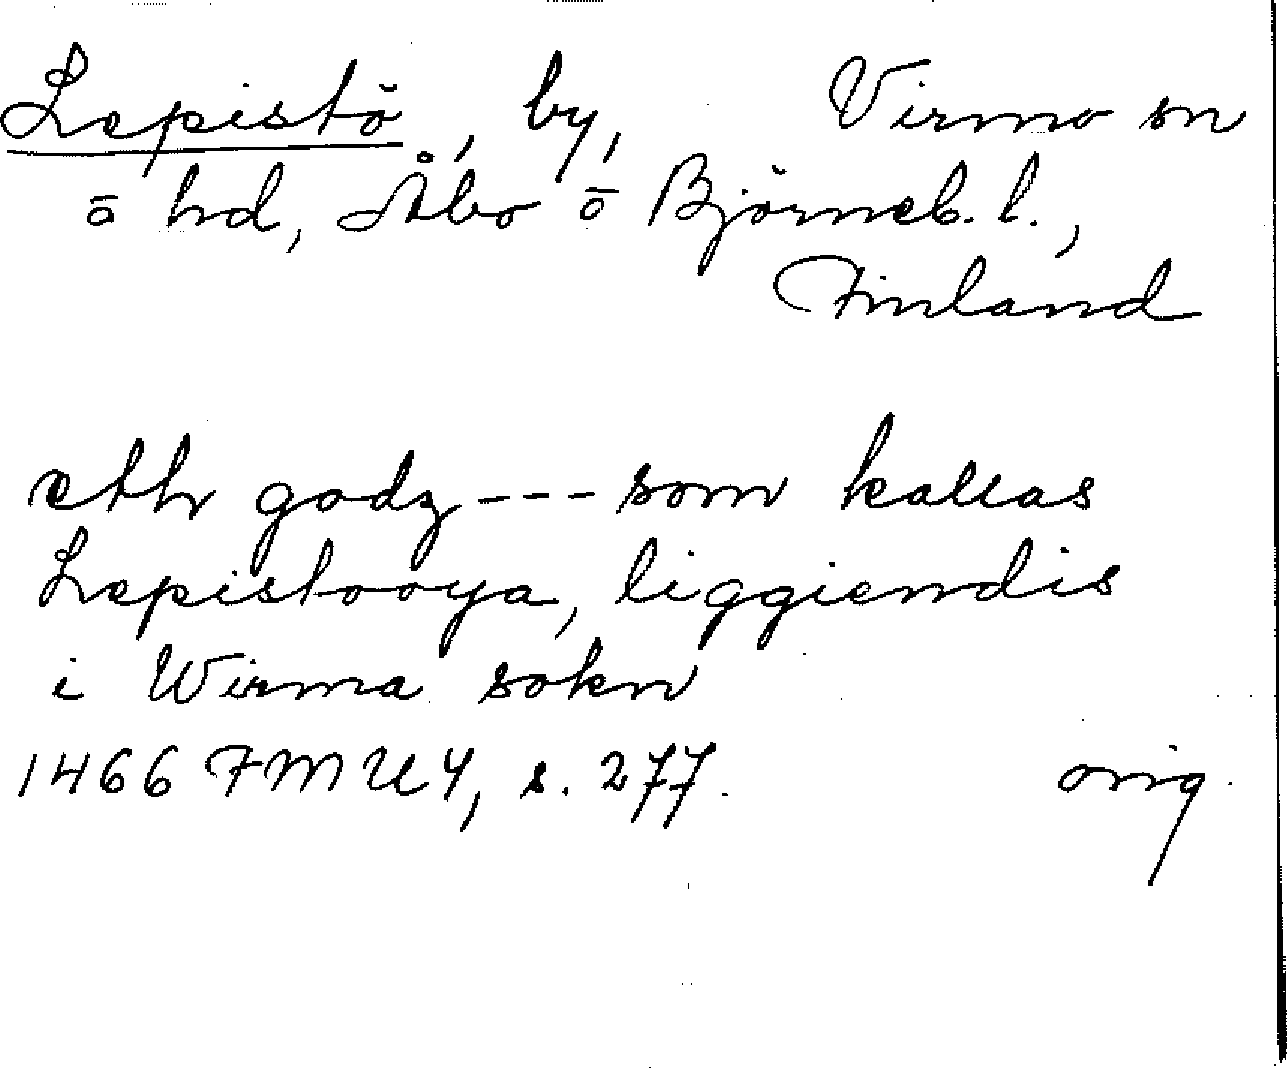 Lepistö, by, Virmo sn
o hd, Åbo o Björneb. l.,
Finland
eth godz --- som kallas
Lepistooya, liggiendis
i Wirma sokn
1466 FMU 4, s. 277. orig.